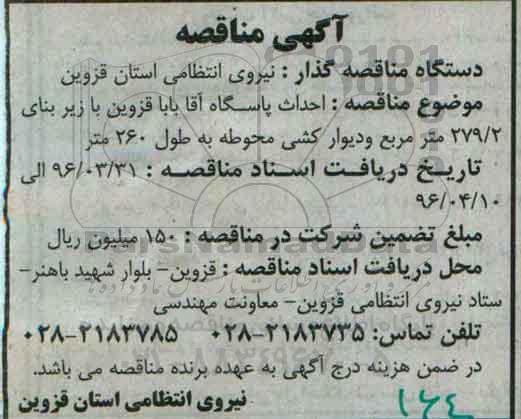 آگهی مناقصه
دستگاه مناقصه گذار : نیروی انتظامی استان قزوین
موضوع مناقصه : احداث پاسگاه آقا بابا قزوین با زیر بنای
۲۷۹/۲ متر مربع ودیوار کشی محوطه به طول ۲۶۰ متر
تاریخ دریافت اسناد مناقصه : ۹۶/۰۳/۳۱ الی
۹۶/۰۴/۱۰
مبلغ تضمین شرکت در مناقصه : ۱۵۰ میلیون ریال
محل دریافت اسناد مناقصه : قزوین- بلوار شهید باهنر-
ستاد نیروی انتظامی قزوین- معاونت مهندسی
تلفن تماس: ۲۱۸۳۷۳۵-۰۲۸ ۲۱۸۳۷۸۵-۰۲۸
در ضمن هزینه درج آگهی به عهده برنده مناقصه می باشد.
نیروی انتظامی استان قزوین
۱۶٤